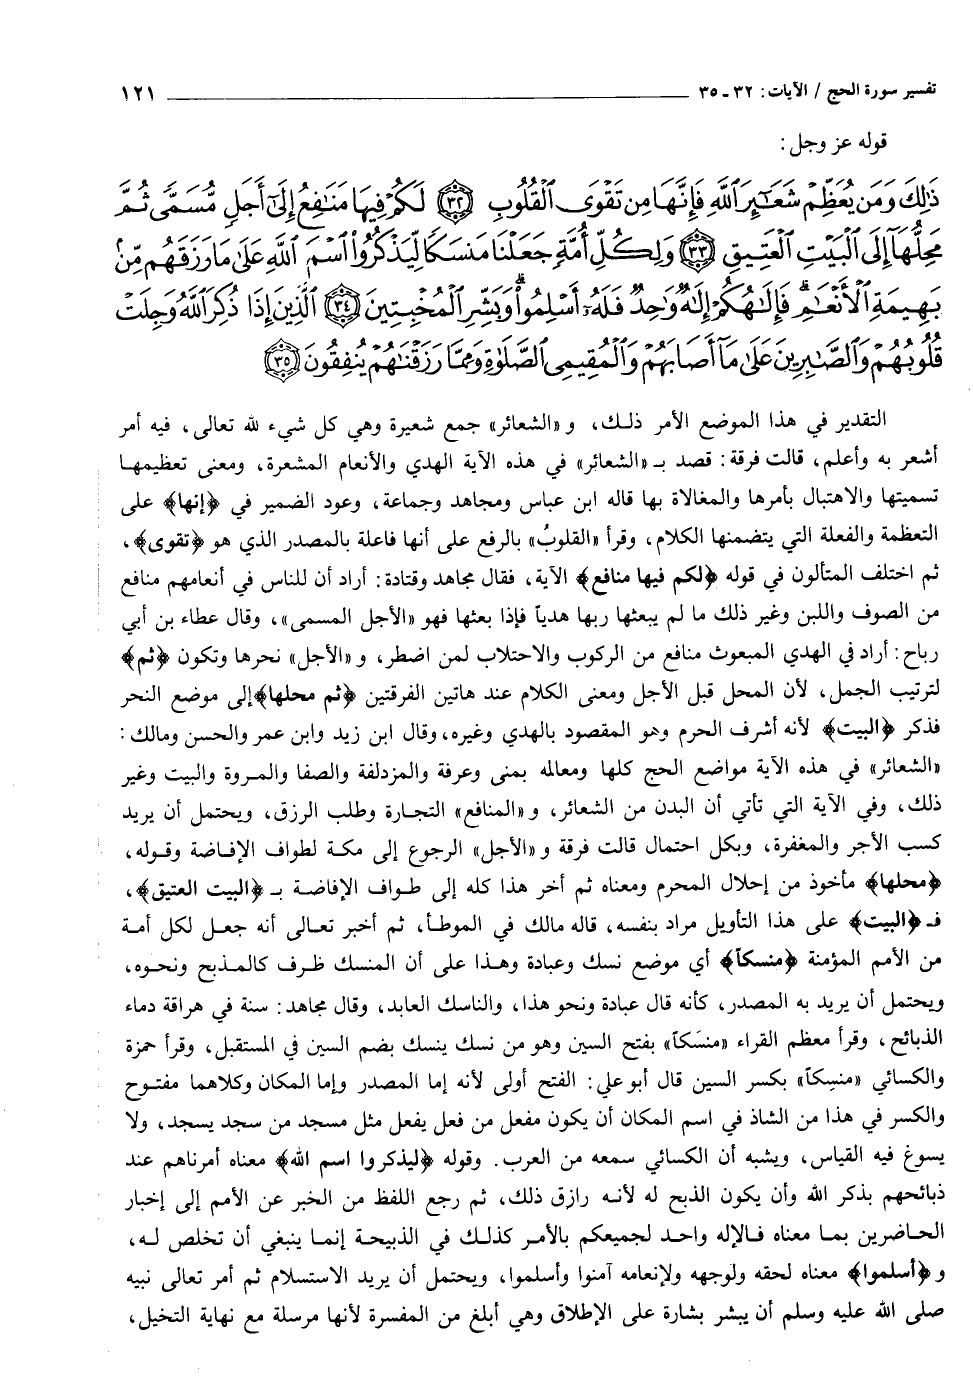 تفسير سورة الحج / الآيات: ٣٢ - ٣٥ ١٢١
قوله عز وجل:
ذَٰلِكَ وَمَن يُعَظِّمْ شَعَـٰٓئِرَ ٱللَّهِ فَإِنَّهَا مِن تَقْوَى ٱلْقُلُوبِ ﴿٣٢﴾ لَكُمْ فِيهَا مَنَـٰفِعُ إِلَىٰٓ أَجَلٍ مُّسَمًّى ثُمَّ
مَحِلُّهَآ إِلَى ٱلْبَيْتِ ٱلْعَتِيقِ ﴿٣٣﴾ وَلِكُلِّ أُمَّةٍ جَعَلْنَا مَنسَكًا لِّيَذْكُرُوا۟ ٱسْمَ ٱللَّهِ عَلَىٰ مَا رَزَقَهُم مِّنۢ
بَهِيمَةِ ٱلْأَنْعَـٰمِ ۗ فَإِلَـٰهُكُمْ إِلَـٰهٌ وَٰحِدٌ فَلَهُۥٓ أَسْلِمُوا۟ ۗ وَبَشِّرِ ٱلْمُخْبِتِينَ ﴿٣٤﴾ ٱلَّذِينَ إِذَا ذُكِرَ ٱللَّهُ وَجِلَتْ
قُلُوبُهُمْ وَٱلصَّـٰبِرِينَ عَلَىٰ مَآ أَصَابَهُمْ وَٱلْمُقِيمِى ٱلصَّلَوٰةِ وَمِمَّا رَزَقْنَـٰهُمْ يُنفِقُونَ ﴿٣٥﴾
التقدير في هذا الموضع الأمر ذلك، و «الشعائر» جمع شعيرة وهي كل شيء لله تعالى، فيه أمر
أشعر به وأعلم، قالت فرقة: قصد بـ «الشعائر» في هذه الآية الهدي والأنعام المشعرة، ومعنى تعظيمها
تسميتها والاهتبال بأمرها والمغالاة بها قاله ابن عباس ومجاهد وجماعة، وعود الضمير في ﴿إنها﴾ على
التعظمة والفعلة التي يتضمنها الكلام، وقرأ «القلوبُ» بالرفع على أنها فاعلة بالمصدر الذي هو ﴿تقوى﴾،
ثم اختلف المتألون في قوله ﴿لكم فيها منافع﴾ الآية، فقال مجاهد وقتادة: أراد أن للناس في أنعامهم منافع
من الصوف واللبن وغير ذلك ما لم يبعثها ربها هدياً فإذا بعثها فهو «الأجل المسمى»، وقال عطاء بن أبي
رباح: أراد في الهدي المبعوث منافع من الركوب والاحتلاب لمن اضطر، و «الأجل» نحرها وتكون ﴿ثم﴾
لترتيب الجمل، لأن المحل قبل الأجل ومعنى الكلام عند هاتين الفرقتين ﴿ثم محلها﴾إلى موضع النحر
فذكر ﴿البيت﴾ لأنه أشرف الحرم وهو المقصود بالهدي وغيره، وقال ابن زيد وابن عمر والحسن ومالك:
«الشعائر» في هذه الآية مواضع الحج كلها ومعالمه بمنى وعرفة والمزدلفة والصفا والمروة والبيت وغير
ذلك، وفي الآية التي تأتي أن البدن من الشعائر، و «المنافع» التجارة وطلب الرزق، ويحتمل أن يريد
كسب الأجر والمغفرة، وبكل احتمال قالت فرقة و «الأجل» الرجوع إلى مكة لطواف الإفاضة وقوله،
﴿محلها﴾ مأخوذ من إحلال المحرم ومعناه ثم أخر هذا كله إلى طواف الإفاضة بـ ﴿البيت العتيق﴾،
فـ ﴿البيت﴾ على هذا التأويل مراد بنفسه، قاله مالك في الموطأ، ثم أخبر تعالى أنه جعل لكل أمة
من الأمم المؤمنة ﴿منسكاً﴾ أي موضع نسك وعبادة وهذا على أن المنسك ظرف كالمذبح ونحوه،
ويحتمل أن يريد به المصدر، كأنه قال عبادة ونحو هذا، والناسك العابد، وقال مجاهد: سنة في هراقة دماء
الذبائح، وقرأ معظم القراء «منسَكاً» بفتح السين وهو من نسك ينسك بضم السين في المستقبل، وقرأ حمزة
والكسائي «منسِكاً» بكسر السين قال أبو علي: الفتح أولى لأنه إما المصدر وإما المكان وكلاهما مفتوح
والكسر في هذا من الشاذ في اسم المكان أن يكون مفعل من فعل يفعل مثل مسجد من سجد يسجد، ولا
يسوغ فيه القياس، ويشبه أن الكسائي سمعه من العرب. وقوله ﴿ليذكروا اسم الله﴾ معناه أمرناهم عند
ذبائحهم بذكر الله وأن يكون الذبح له لأنه رازق ذلك، ثم رجع اللفظ من الخبر عن الأمم إلى إخبار
الحاضرين بما معناه فالإله واحد لجميعكم بالأمر كذلك في الذبيحة إنما ينبغي أن تخلص له،
و ﴿أسلموا﴾ معناه لحقه ولوجهه ولإنعامه آمنوا وأسلموا، ويحتمل أن يريد الاستسلام ثم أمر تعالى نبيه
صلى الله عليه وسلم أن يبشر بشارة على الإطلاق وهي أبلغ من المفسرة لأنها مرسلة مع نهاية التخيل،